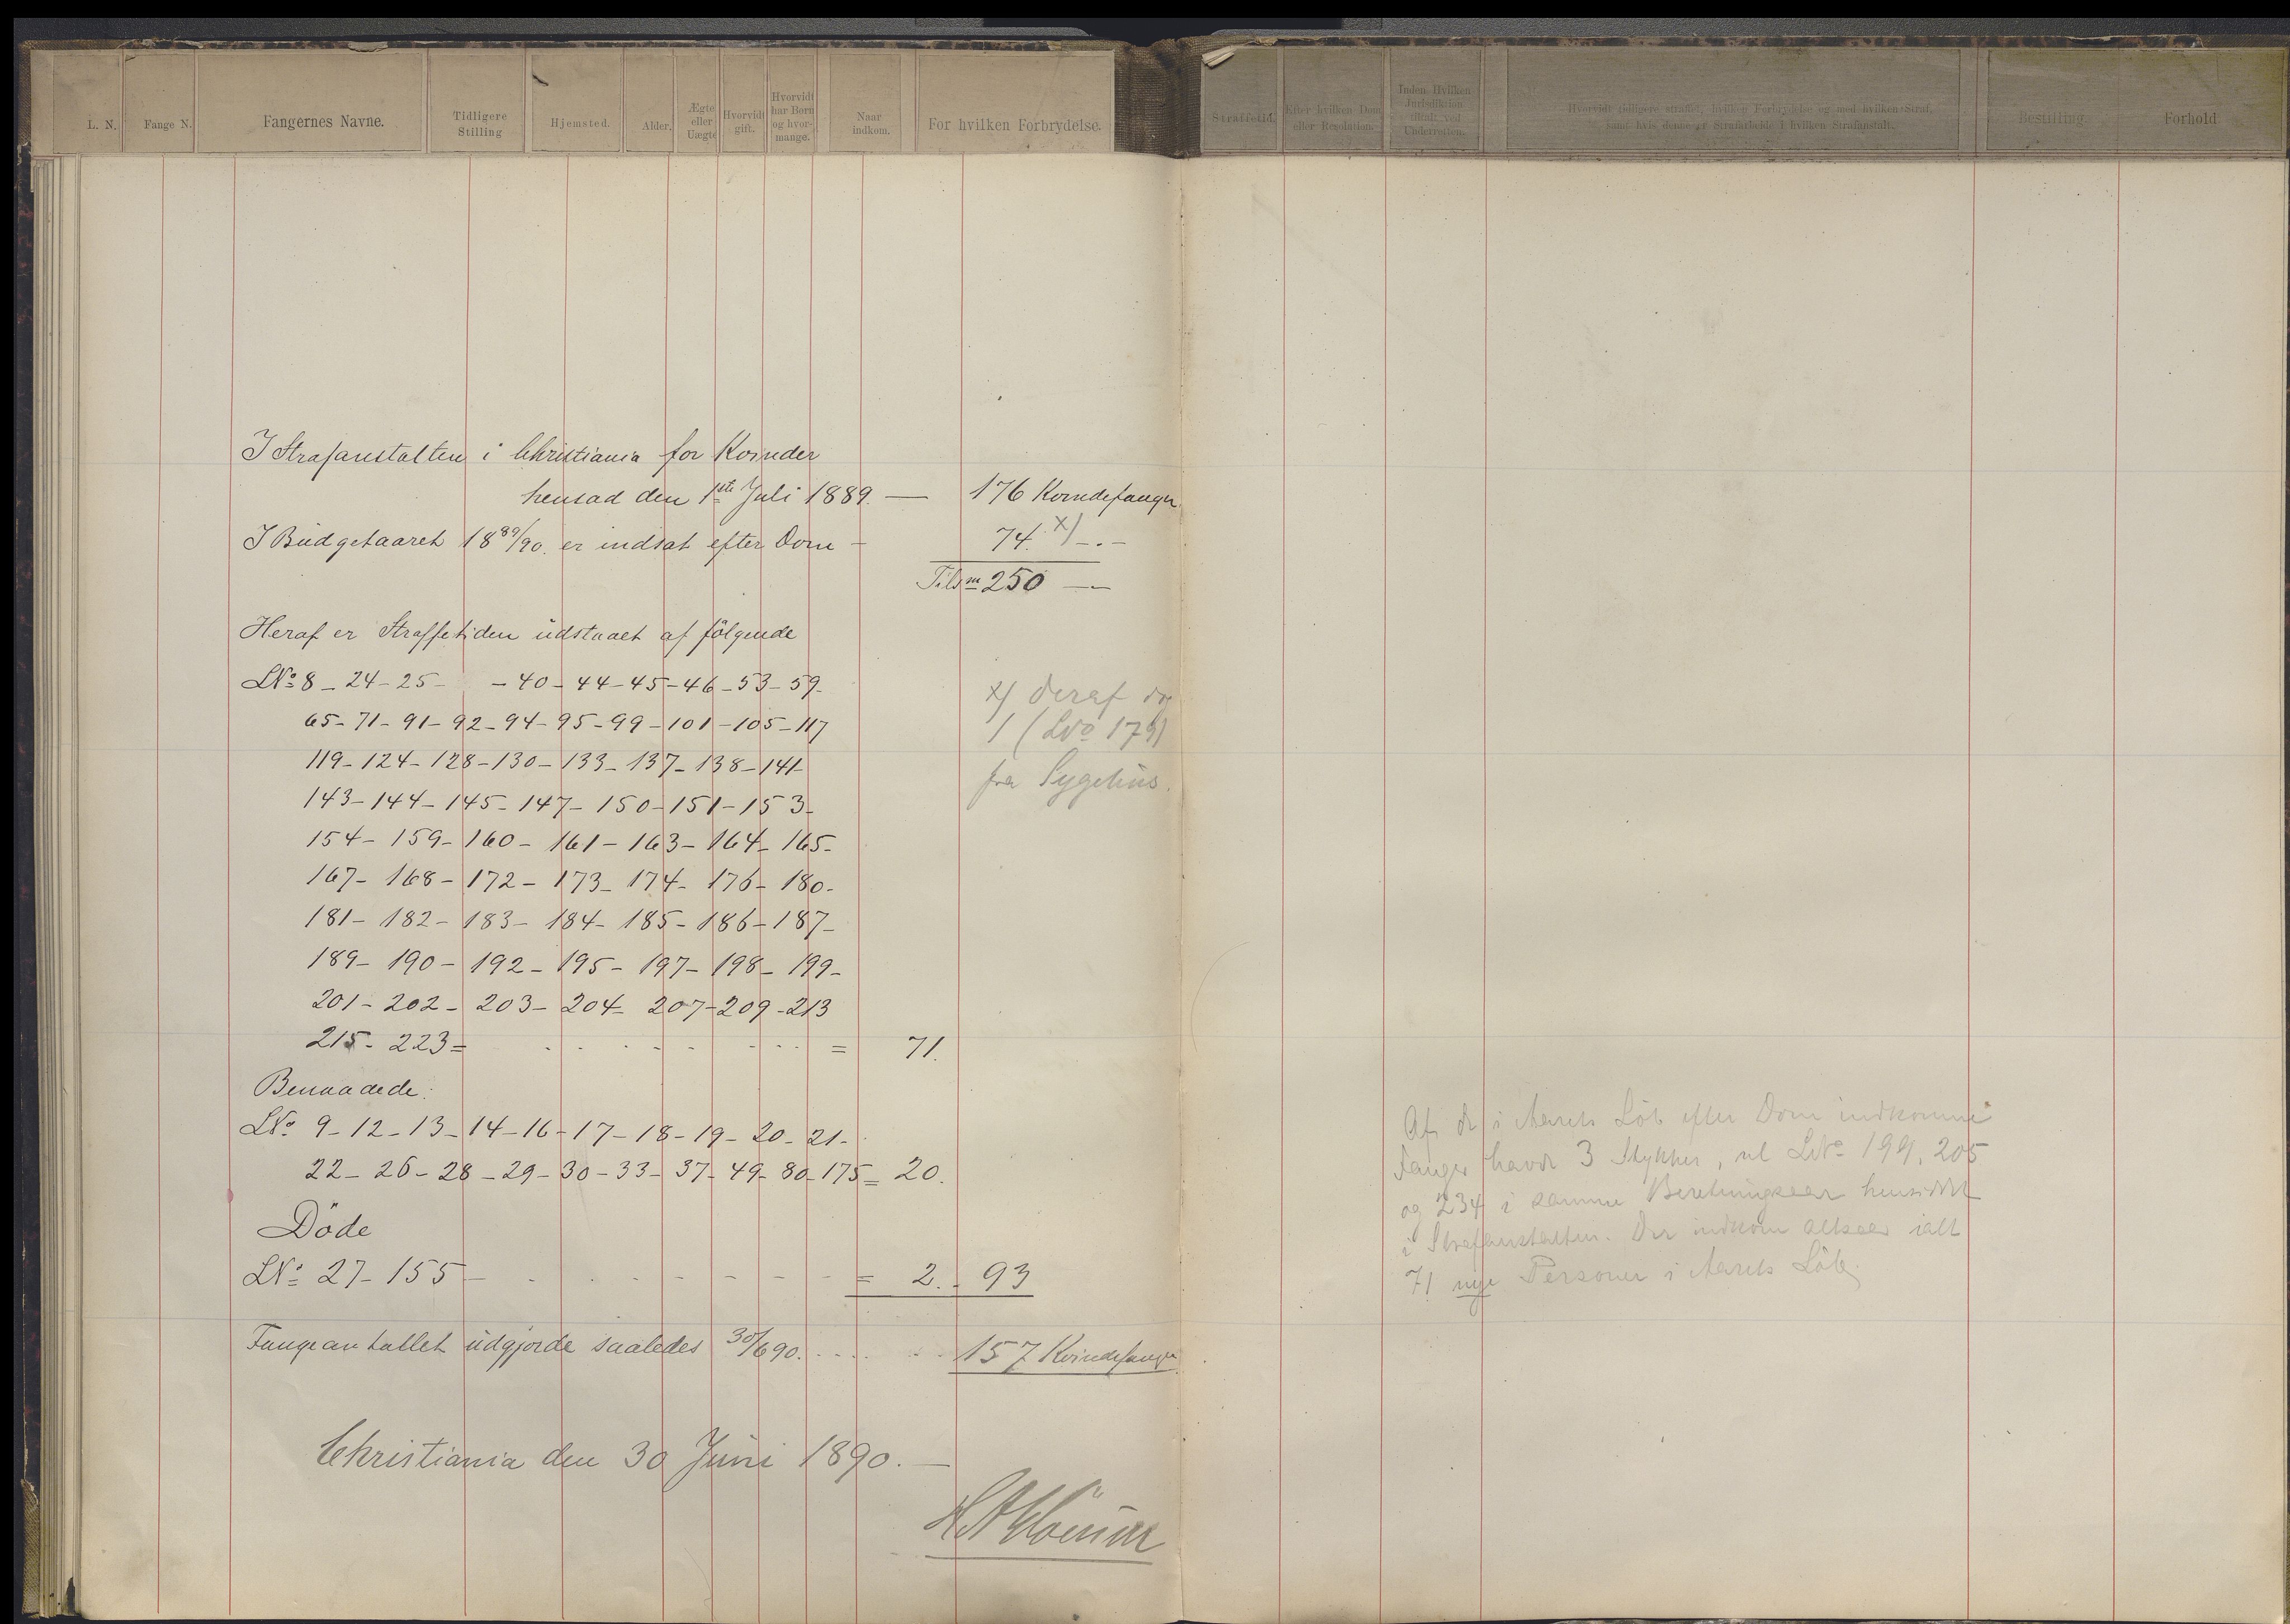 L. N.
Fange N.
Fangernes Navne.
Tidligere
Stilling
Hjemsted.
Alder.
Ægte
eller
Uægte
Hvorvidt
gift.
Hvorvidt
har Børn
og hvor-
mange.
Naar
indkom.
For hvilken Forbrydelse.
Straffetid.
Efter hvilken Dom
eller Resolution.
Inden Hvilken
Jurisdiktion
tiltalt ved
Underretten.
Hvorvidt tidligere straffet, hvilken Forbrydelse og med hvilken Straf,
samt hvis denne er Strafarbeide i hvilken Strafanstalt.
Bestilling.
Forhold
I Strafanstalten i Christiania for Kvinder
hensad den 1ste Juli 1889. — 176 Kvindefanger
I Budgetaaret 1889/90. er indsat efter Dom - 74. x) -.-
Tilsm 250 —
Heraf er Straffetiden udstaaet af følgende
LNo 8 - 24 - 25 - - 40 - 44 - 45 - 46 - 53 - 59 -
65 - 71 - 91 - 92 - 94 - 95 - 99 - 101 - 105 - 117
119 - 124 - 128 - 130 - 133 - 137 - 138 - 141 -
143 - 144 - 145 - 147 - 150 - 151 - 153 -
154 - 159 - 160 - 161 - 163 - 164 - 165 -
167 - 168 - 172 - 173 - 174 - 176 - 180 -
181 - 182 - 183 - 184 - 185 - 186 - 187 -
189 - 190 - 192 - 195 - 197 - 198 - 199 -
201 - 202 - 203 - 204 - 207 - 209 - 213
215 - 223 = = 71.
Benaadede:
LNo 9 - 12 - 13 - 14 - 16 - 17 - 18 - 19 - 20 - 21 -
22 - 26 - 28 - 29 - 30 - 33 - 37 - 49 - 80 - 175 = 20.
Döde
LNo 27 - 155 - = 2. - 93
Fangeantallet udgjorde saaledes 30/6 90. 157 Kvindefanger
Christiania den 30 Juni 1890. —
x) deraf dog
1 (LNo 179)
fra Sygehus.
Af de i Aarets Löb efter Dom indkomne
Fanger havde 3 Stykker, nl LNo 199, 205
og 234 i samme Beretningsaar hensiddet
i Strafanstalten. Der indkom altsaa ialt
71 nye Personer i Aarets Löb.